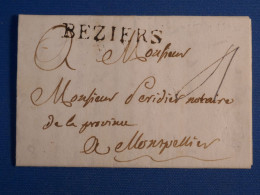 BEZIERS
A Monsieur
Monsieur peridier notaire
de la province
A Montpellier